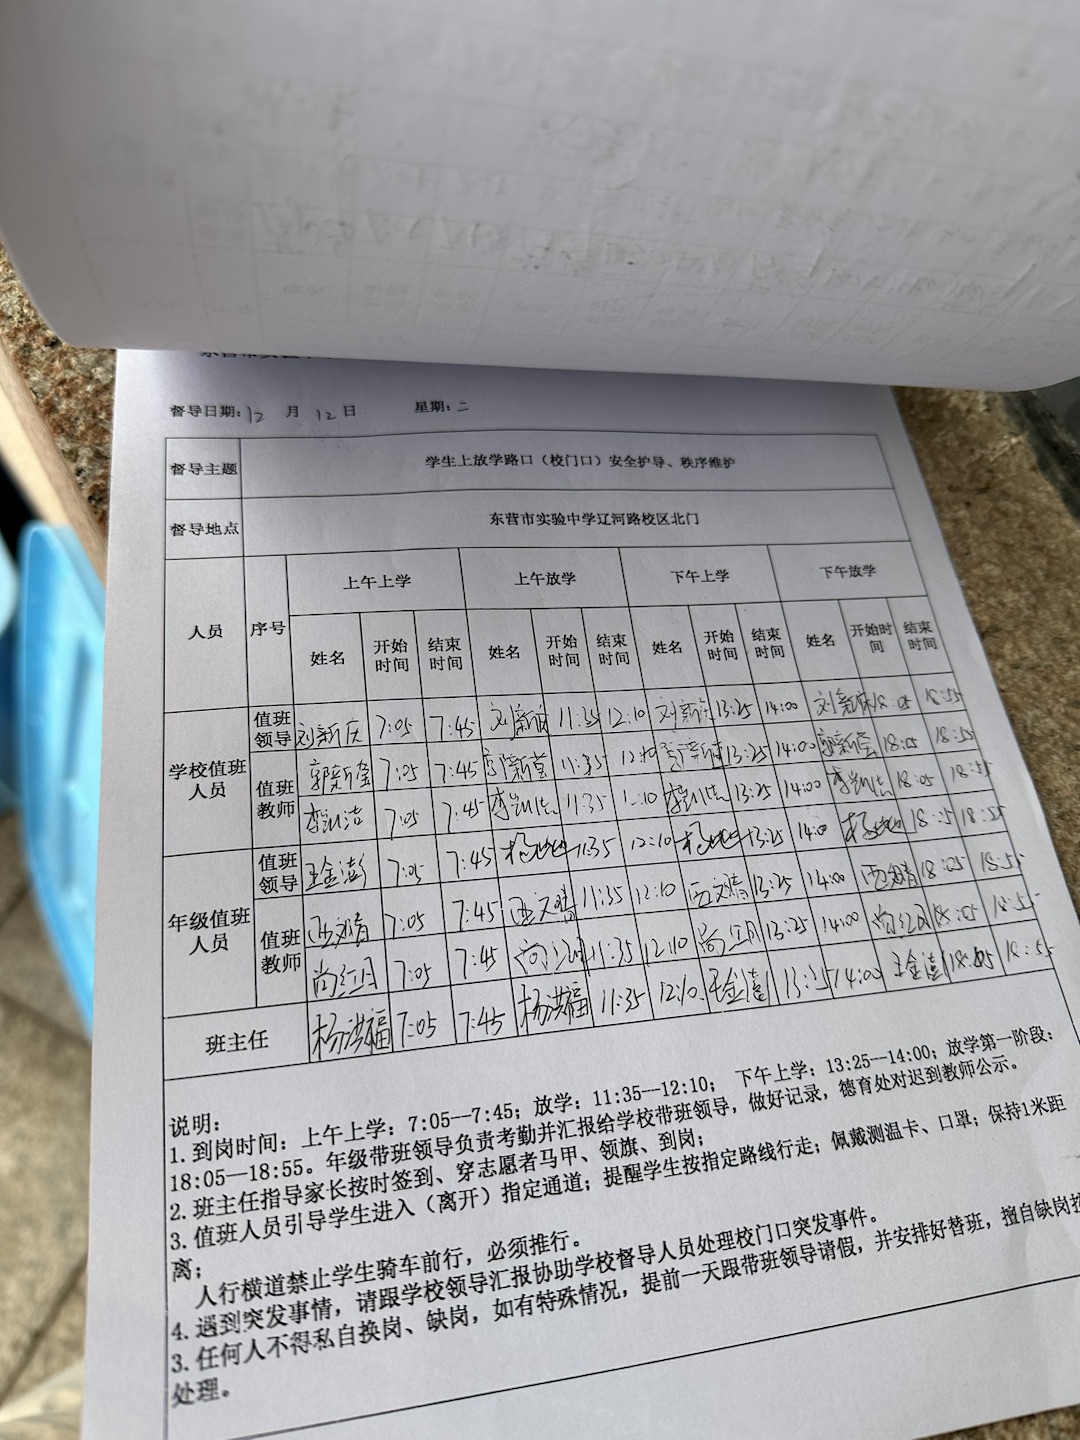 督导日期:12月12日 星期:二
督导主题 学生上放学路口（校门口）安全护导、秩序维护
督导地点 东营市实验中学辽河路校区北门
人员 序号 上午上学 上午放学 下午上学 下午放学
姓名 开始时间 结束时间 姓名 开始时间 结束时间 姓名 开始时间 结束时间 姓名 开始时间 结束时间
学校值班人员 值班领导 刘新 7:05 7:45 刘新 11:35 12:10 刘新 13:25 14:00 刘新 18:05 18:55
值班教师 郭新莹 7:05 7:45 郭新莹 11:35 郭新莹 13:25 14:00 郭新莹 18:05 18:55
李凯洁 7:05 7:45 李凯洁 11:35 李凯洁 13:25 14:00 李凯洁 18:05 18:55
年级值班人员 值班领导 王金澎 7:05 7:45 杨 11:35 12:10 杨 13:25 14:00 杨 18:55
值班教师 文靖 7:05 7:45 11:35 12:10 文靖 13:25 14:00 文靖 18:05 18:55
尚红月 7:05 7:45 尚红月 11:35 12:10 尚红月 13:25 14:00 尚红月 18:05 18:55
班主任 杨洪福 7:05 7:45 杨洪福 11:35 12:10 王金澎 14:00 王金澎 18:05 18:55
说明：
1. 到岗时间：上午上学：7:05--7:45；放学：11:35--12:10； 下午上学：13:25--14:00；放学第一阶段：
18:05--18:55。年级带班领导负责考勤并汇报给学校带班领导，做好记录，德育处对迟到教师公示。
2. 班主任指导家长按时签到、穿志愿者马甲、领旗、到岗；
3. 值班人员引导学生进入（离开）指定通道；提醒学生按指定路线行走；佩戴测温卡、口罩；保持1米距
离；
人行横道禁止学生骑车前行，必须推行。
4. 遇到突发事情，请跟学校领导汇报协助学校督导人员处理校门口突发事件。
3. 任何人不得私自换岗、缺岗，如有特殊情况，提前一天跟带班领导请假，并安排好替班，擅自缺岗按
处理。